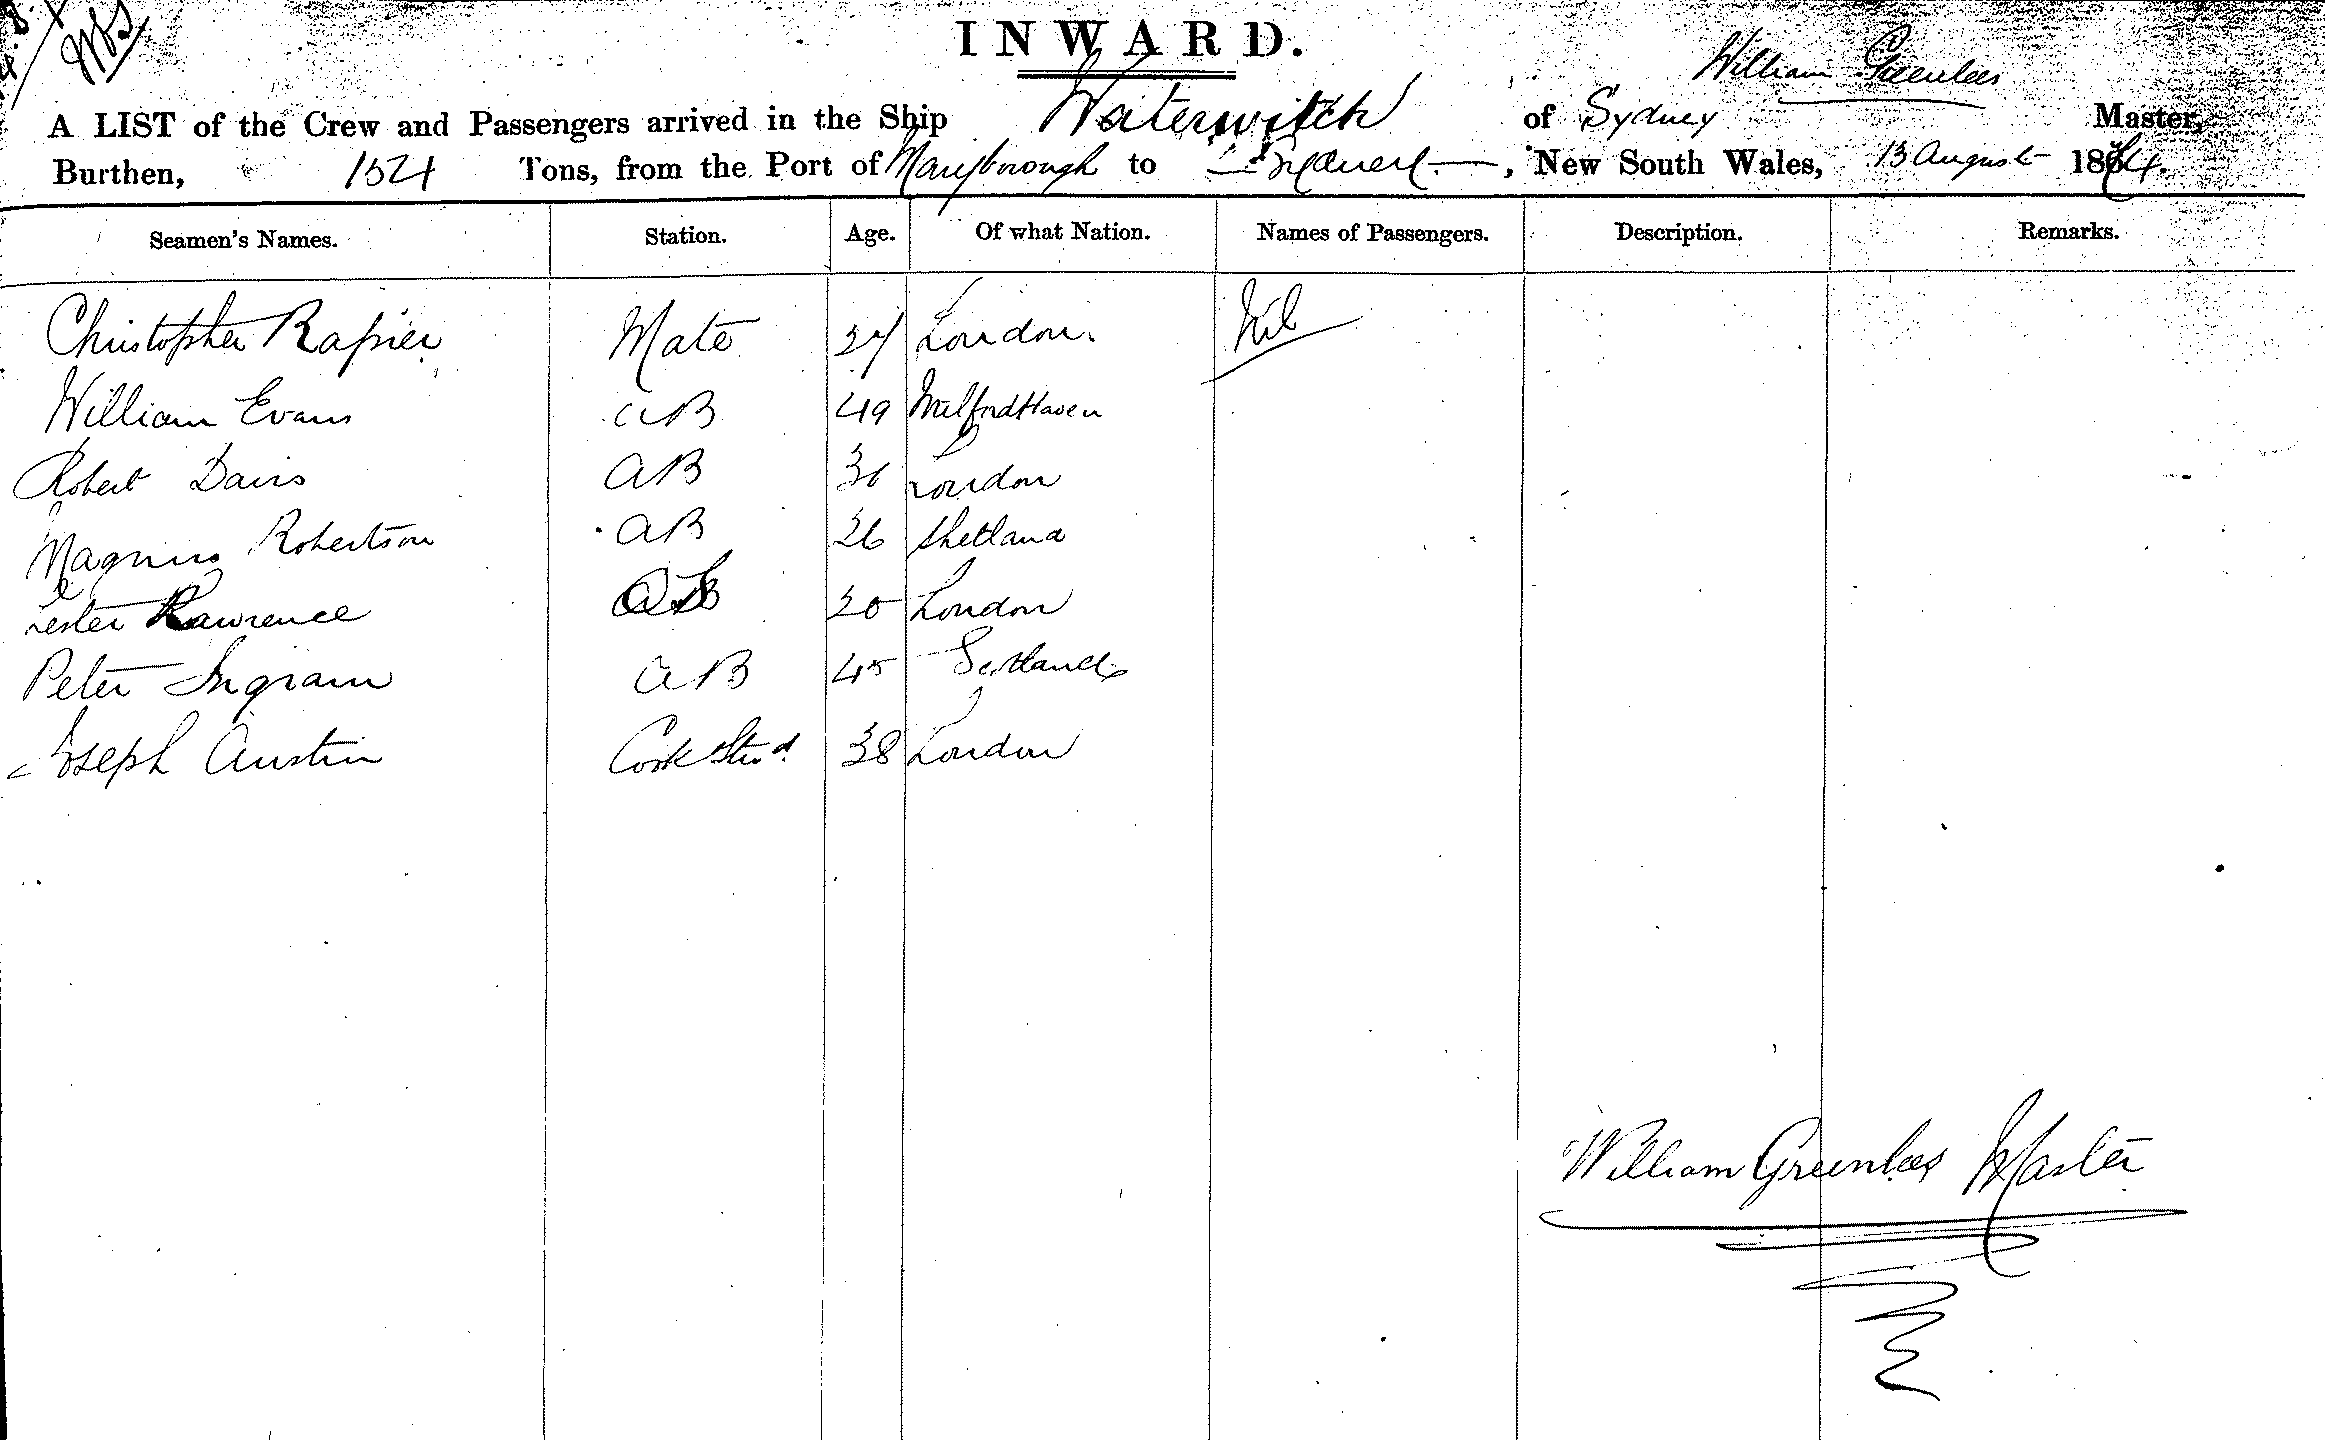 INWARD.
William Greenlees
A LIST of the Crew and Passengers arrived in the Ship Waterwitch of Sydney Master,
Burthen, 1521 Tons, from the Port of Maryborough to Sydney, New South Wales, 13 August 18
Seamen's Names. Station. Age. Of what Nation. Names of Passengers. Description. Remarks.
Christopher Rapier Mate 27 London. Nil
William Evans AB 49 Milford Haven
Robert Davis AB 36 London
Magnus Robertson AB 26 Shetland
Lester Lawrence 20 London
Peter Ingram AB 45 Scotland
Joseph Austin Cook & Stwd. 38 London
William Greenlees Master